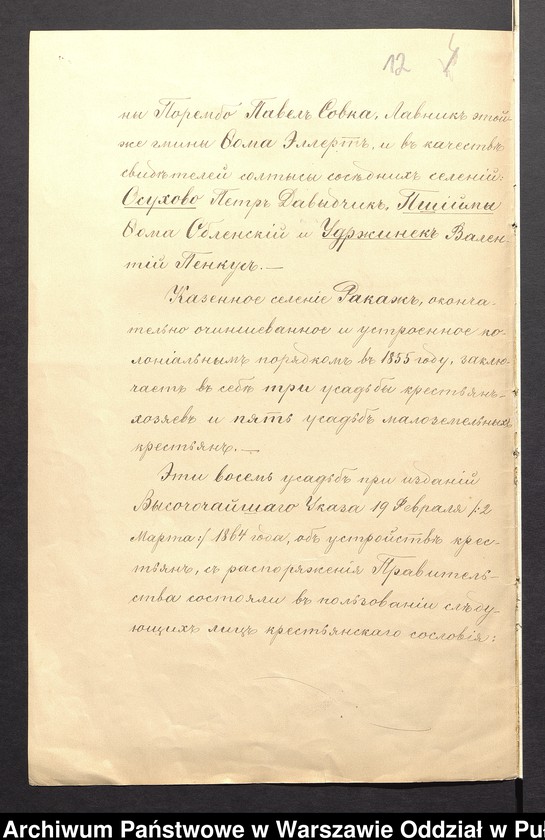 12 4
ны Порембо Павелъ Совка, Лавникъ этой-
же гмины Ѳома Эллертъ, и въ качествѣ
свидѣтелей солтысы сосѣднихъ селеній:
Осухово Петръ Давыдчикъ, Пщіймы
Ѳома Обленскій и Удржинекъ Вален-
тій Пенкуль.—
Казенное селеніе Ракажъ, оконча-
тельно очиншеванное и устроенное ко-
лоніальнымъ порядкомъ въ 1855 году, заклю-
чаетъ въ себѣ три усадьбы крестьянъ-
хозяевъ и пять усадьбъ малоземельныхъ
крестьянъ.—
Эти восемь усадьбъ при изданіи
Высочочайшаго Указа 19 Февраля /:2
Марта:/ 1864 года, объ устройствѣ крес-
тьянъ, съ распоряженія Правитель-
ства состояли въ пользованіи слѣду-
ющихъ лицъ крестьянскаго сословія:
Archiwum Państwowe w Warszawie Oddział w Pu